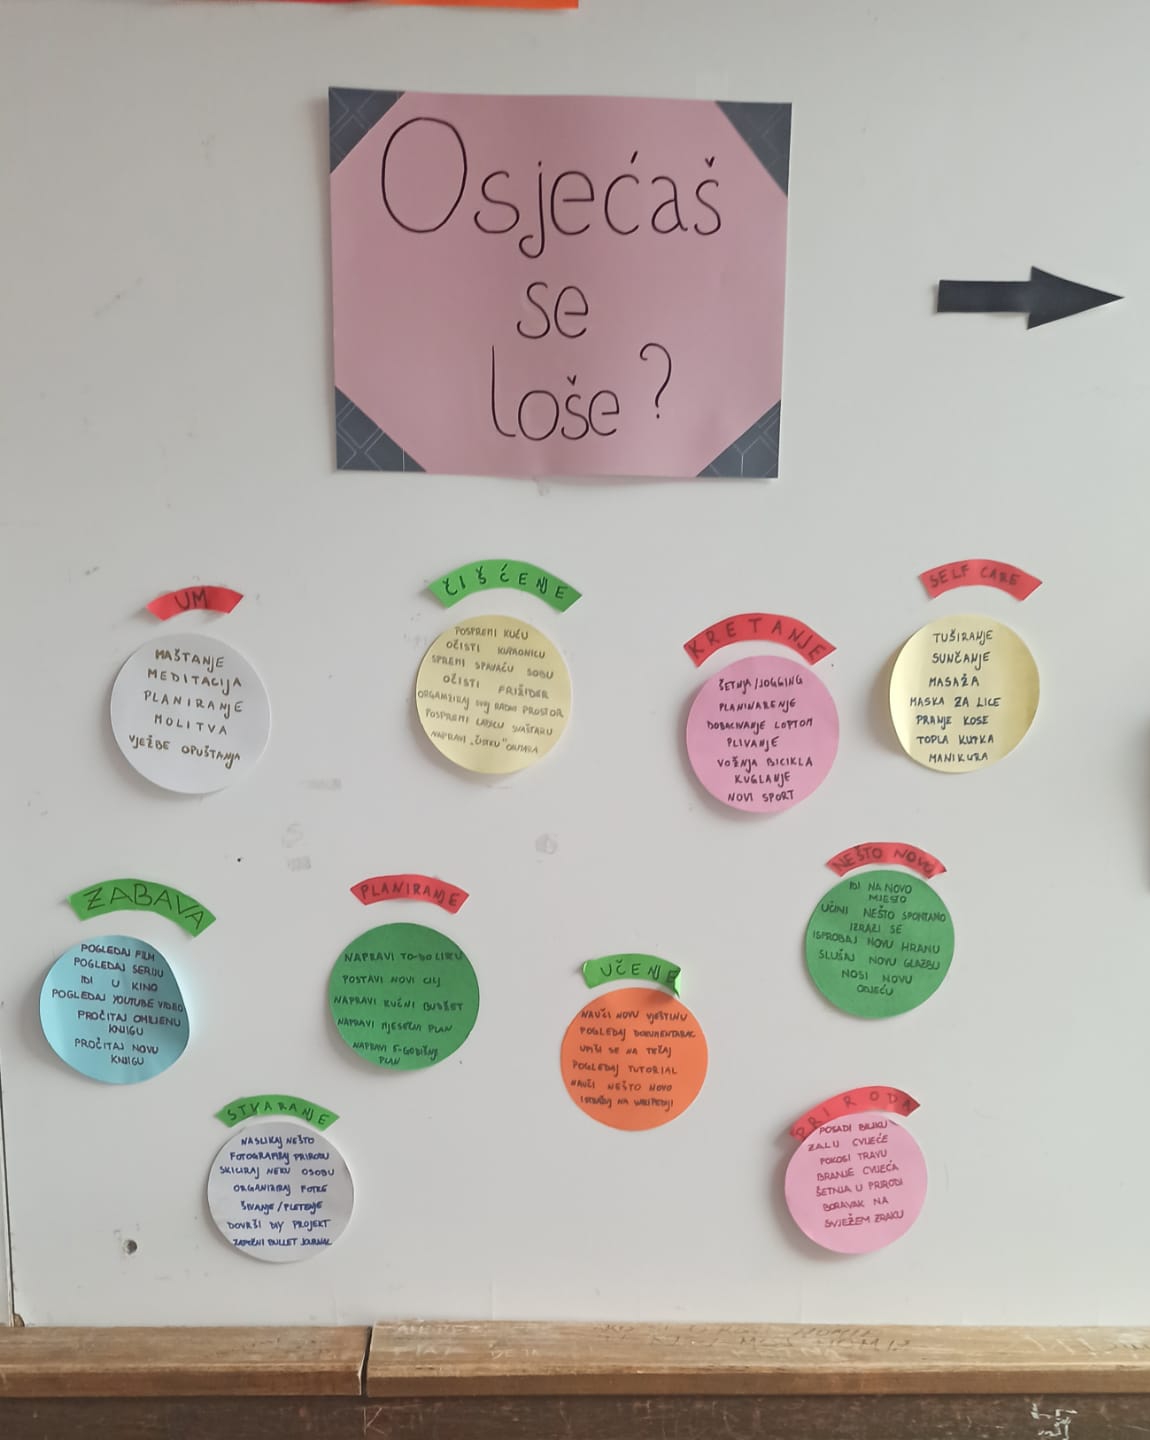 Osjećaš
se
loše?
UM
MAŠTANJE
MEDITACIJA
PLANIRANJE
MOLITVA
VJEŽBE OPUŠTANJA
ČIŠĆENJE
POSPREMI KUĆU
OČISTI KUPAONICU
SPREMI SPAVAĆU SOBU
OČISTI FRIŽIDER
ORGANIZIRAJ SVOJ RADNI PROSTOR
POSPREMI LADICU SVAŠTARU
NAPRAVI „ČISTKU" ORMARA
KRETANJE
ŠETNJA/JOGGING
PLANINARENJE
DOBACIVANJE LOPTOM
PLIVANJE
VOŽNJA BICIKLA
KUGLANJE
NOVI SPORT
SELF CARE
TUŠIRANJE
SUNČANJE
MASAŽA
MASKA ZA LICE
PRANJE KOSE
TOPLA KUPKA
MANIKURA
ZABAVA
POGLEDAJ FILM
POGLEDAJ SERIJU
IDI U KINO
POGLEDAJ YOUTUBE VIDEO
PROČITAJ OMILJENU
KNJIGU
PROČITAJ NOVU
KNJIGU
PLANIRANJE
NAPRAVI TO-DO LISTU
POSTAVI NOVI CILJ
NAPRAVI KUĆNI BUDŽET
NAPRAVI MJESEČNI PLAN
NAPRAVI 5-GODIŠNJI
PLAN
UČENJE
NAUČI NOVU VJEŠTINU
POGLEDAJ DOKUMENTARAC
UPIŠI SE NA TEČAJ
POGLEDAJ TUTORIAL
NAUČI NEŠTO NOVO
ISTRAŽUJ NA WIKIPEDIJI
NEŠTO NOVO
IDI NA NOVO
MJESTO
UČINI NEŠTO SPONTANO
IZRAZI SE
ISPROBAJ NOVU HRANU
SLUŠAJ NOVU GLAZBU
NOSI NOVU
ODJEĆU
STVARANJE
NASLIKAJ NEŠTO
FOTOGRAFIRAJ PRIRODU
SKICIRAJ NEKU OSOBU
ORGANIZIRAJ FOTKE
ŠIVANJE/PLETENJE
DOVRŠI DIY PROJEKT
ZAPOČNI BULLET JOURNAL
PRIRODA
POSADI BILJKU
ZALIJ CVIJEĆE
POKOSI TRAVU
BRANJE CVIJEĆA
ŠETNJA U PRIRODI
BORAVAK NA
SVJEŽEM ZRAKU